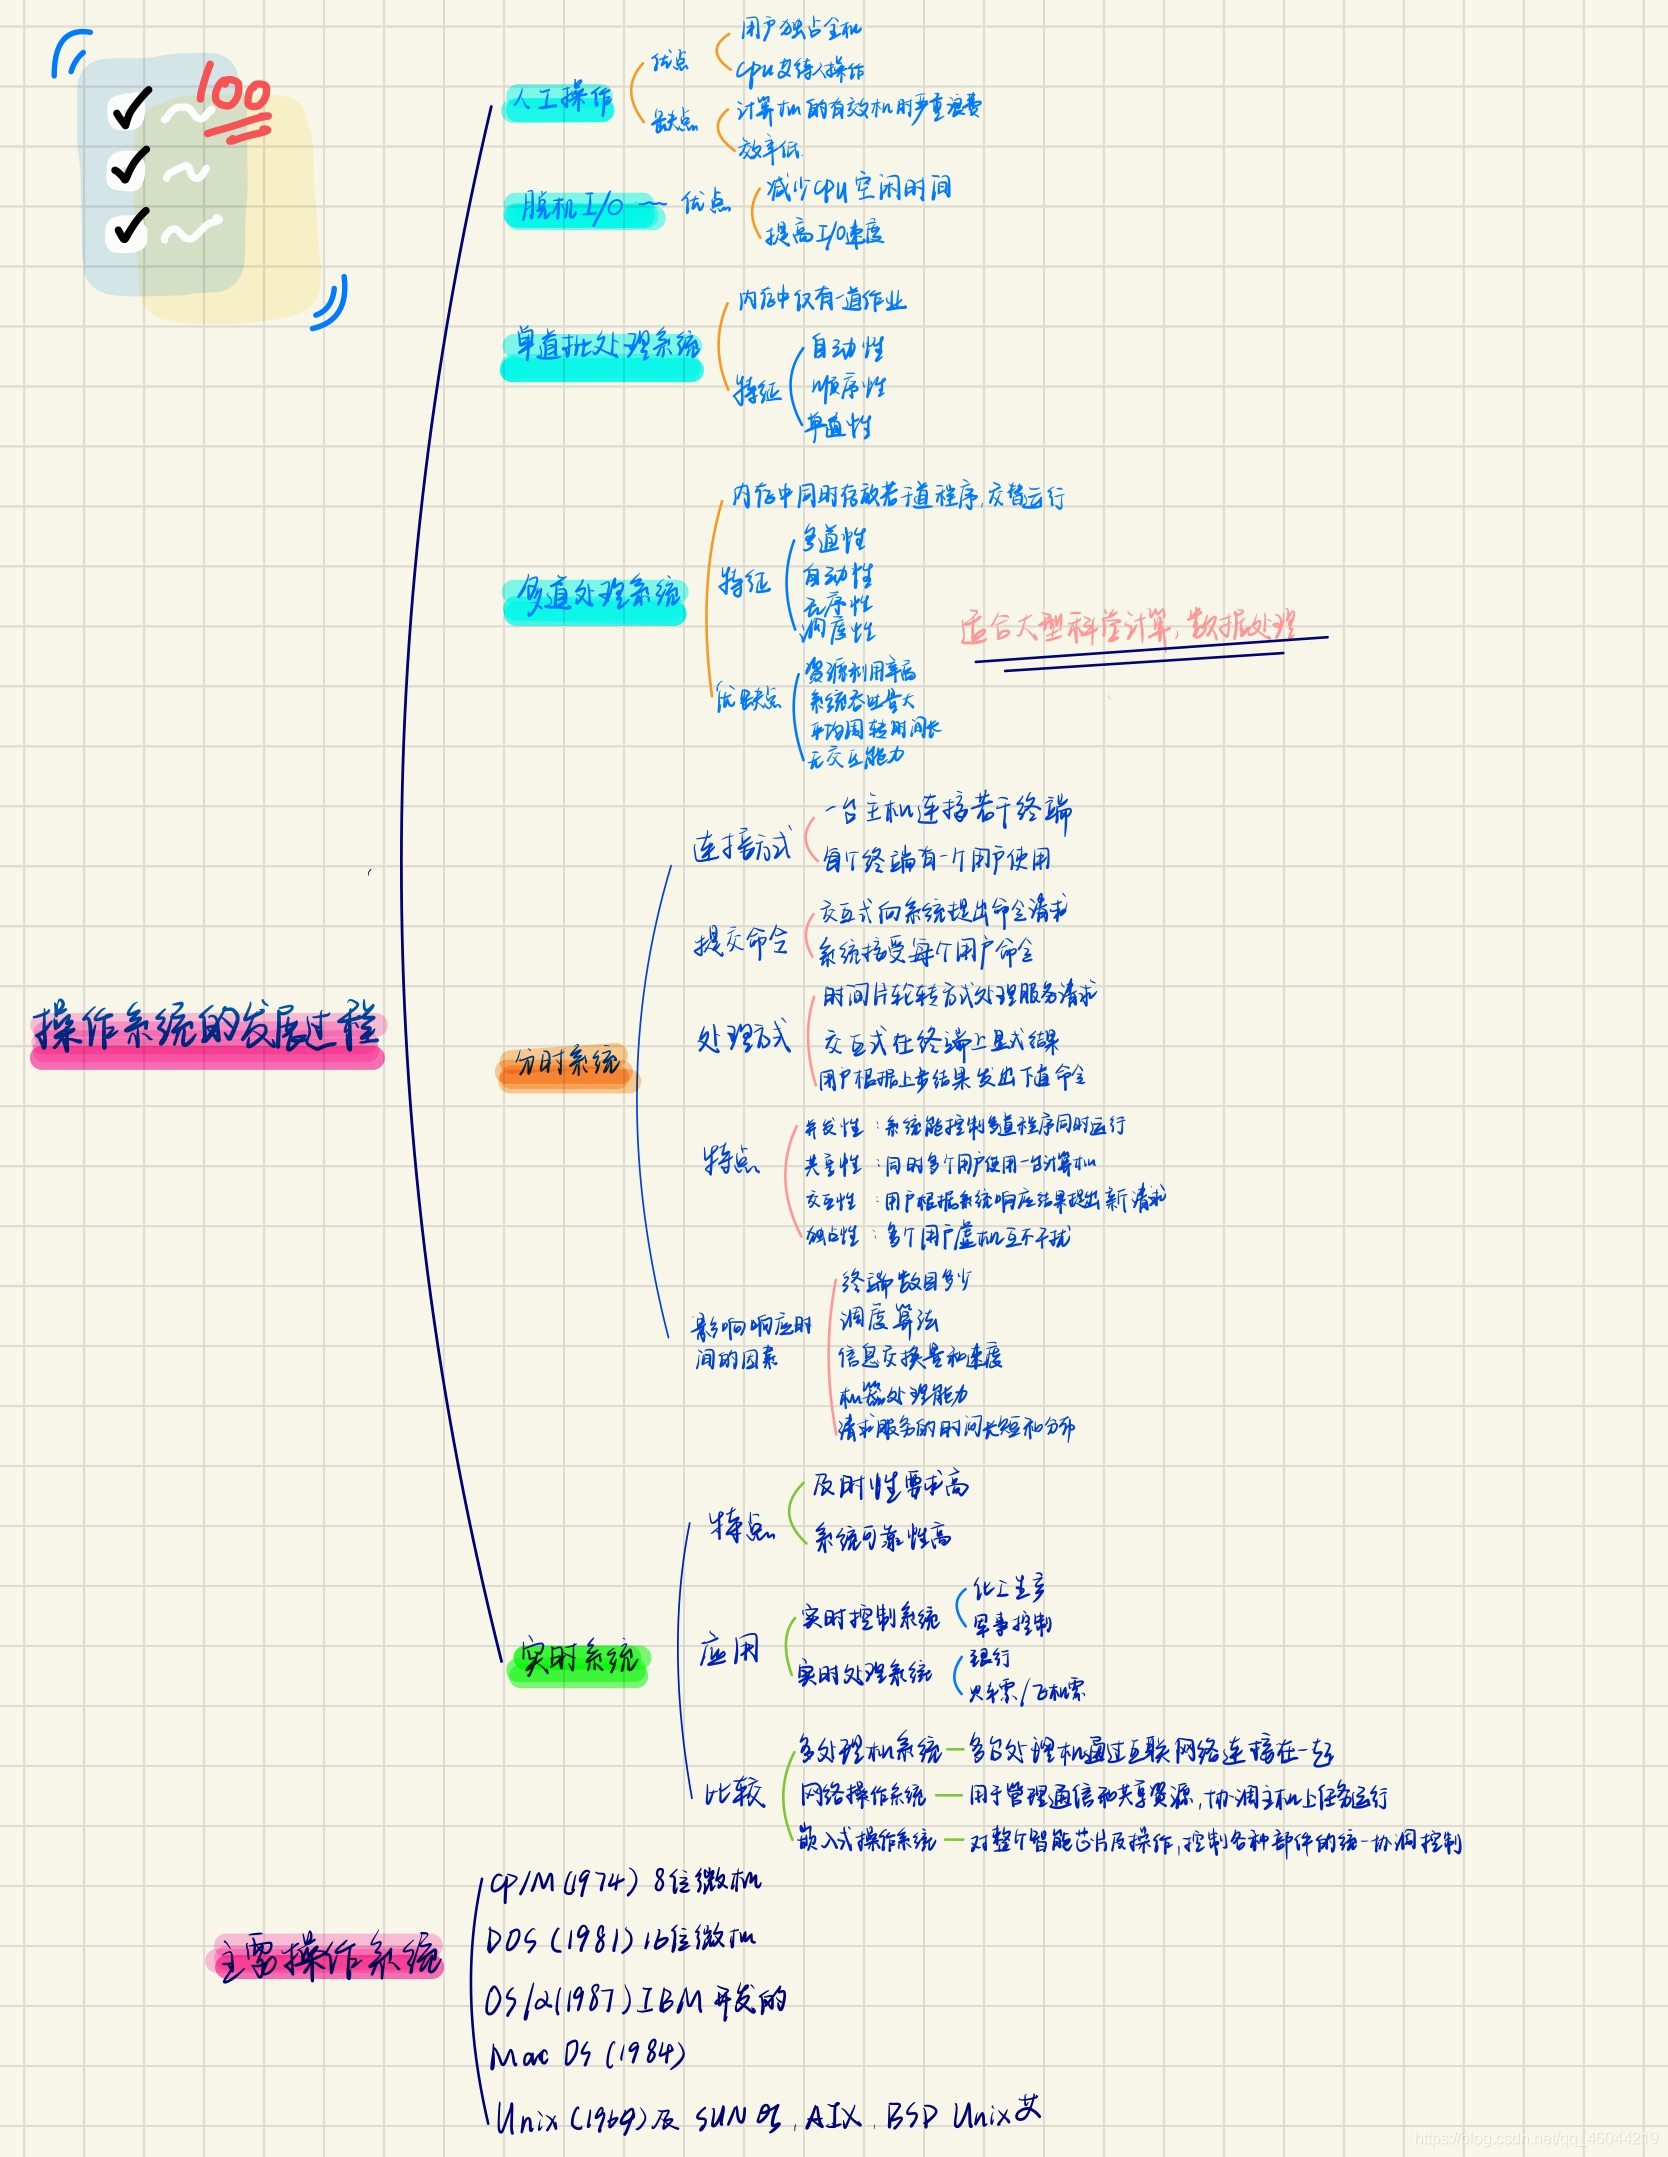 100
人工操作
优点
用户独占全机
CPU等待人操作
缺点
计算机的有效机时严重浪费
效率低
脱机I/O — 优点
减少CPU空闲时间
提高I/O速度
单道批处理系统
内存中仅有一道作业
特征
自动性
顺序性
单道性
多道处理系统
内存中同时存放若干道程序,交替运行
特征
多道性
自动性
无序性
调度性
适合大型科学计算,数据处理
优缺点
资源利用率高
系统吞吐量大
平均周转时间长
无交互能力
操作系统的发展过程
分时系统
连接方式
一台主机连接若干终端
每个终端有一个用户使用
提交命令
交互式向系统提出命令请求
系统接受每个用户命令
处理方式
时间片轮转方式处理服务请求
交互式在终端上显式结果
用户根据上步结果发出下道命令
特点
并发性:系统能控制多道程序同时运行
共享性:同时多个用户使用一台计算机
交互性:用户根据系统响应结果提出新请求
独占性:多个用户虚机互不干扰
影响响应时
间的因素
终端数目多少
调度算法
信息交换量和速度
机器处理能力
请求服务的时间长短和分布
实时系统
特点
及时性要求高
系统可靠性高
应用
实时控制系统
化工生产
军事控制
实时处理系统
银行
火车票/飞机票
比较
多处理机系统 — 多台处理机通过互联网络连接在一起
网络操作系统 — 用于管理通信和共享资源,协调主机上任务运行
嵌入式操作系统 — 对整个智能芯片及操作,控制各种部件的统一协调控制
主要操作系统
CP/M(1974) 8位微机
DOS(1981)16位微机
OS/2(1987)IBM开发的
Mac OS(1984)
Unix(1969)及 SUN, AIX, BSD Unix
https://blog.csdn.net/qq_46044219